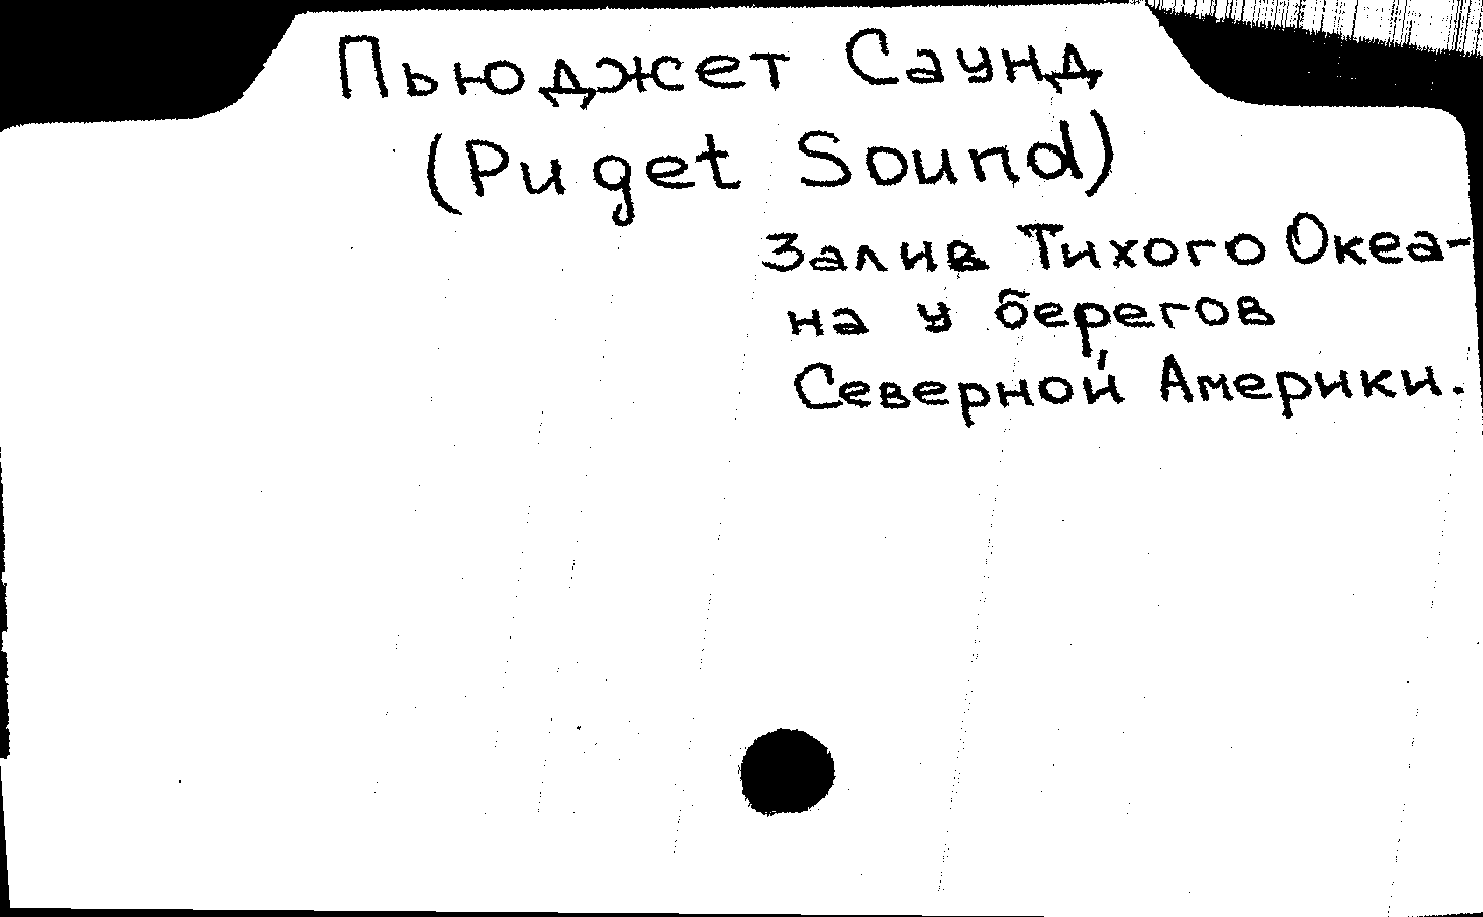 Пьюджет Саунд
(Puget Sound)
Залив Тихого Океа-
на у берегов
Северной Америки.